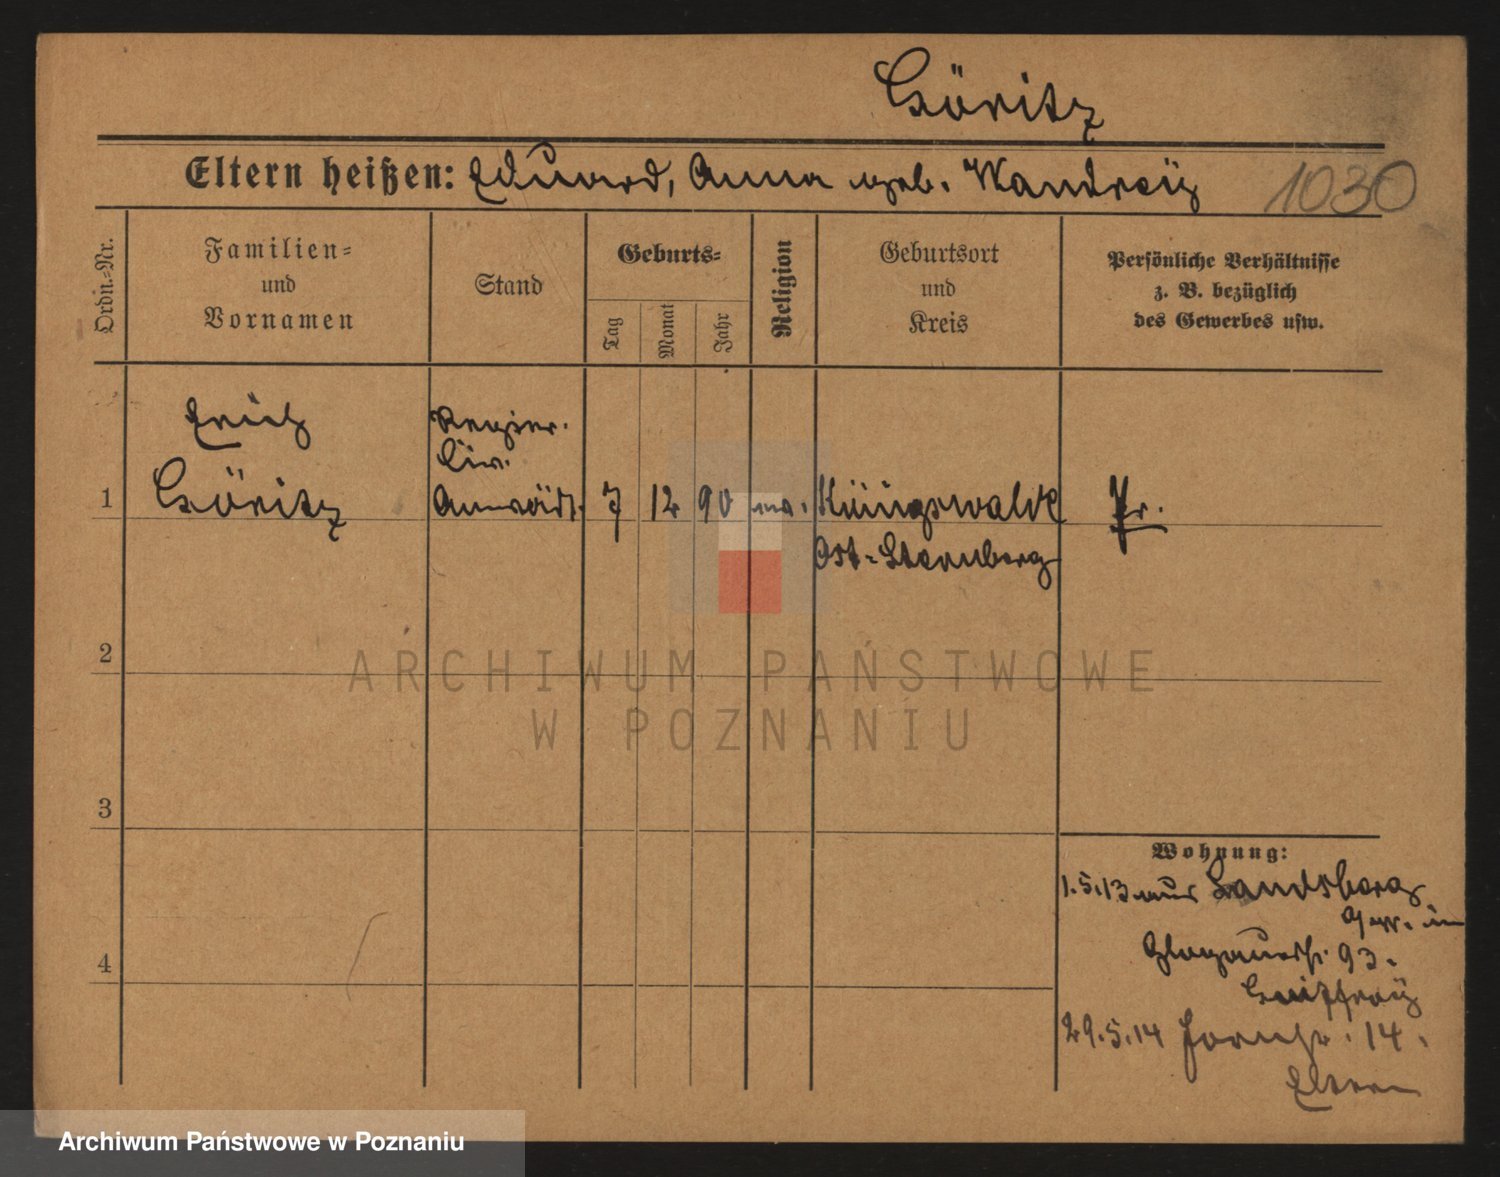 Göritz
Eltern heißen: Eduard, Anna geb. Wandrey
1030
Ordn.-Nr.
Familien-
und
Vornamen
Stand
Geburts-
Tag
Monat
Jahr
Religion
Geburtsort
und
Kreis
Persönliche Verhältnisse
z. B. bezüglich
des Gewerbes usw.
1
Erich
Göritz
Regier.
Civ.
Anwärt.
7
12
90
Königswalde
Ost-Sternberg
Pr.
2
3
4
Wohnung:
1.5.13 aus Landsberg
Glogauerstr. 93.
29.5.14 14.
Eltern
ARCHIWUM PAŃSTWOWE
W POZNANIU
Archiwum Państwowe w Poznaniu